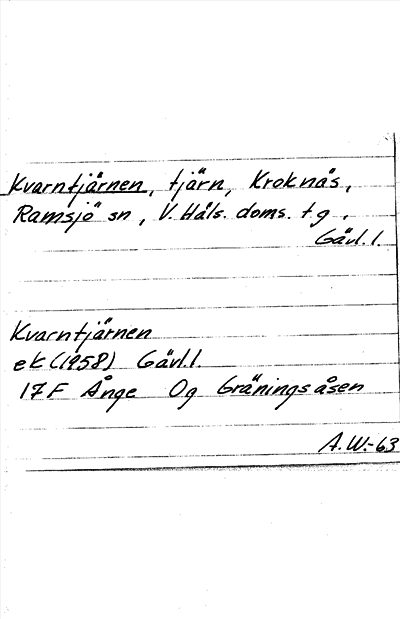 Kvarntjärnen, tjärn, Kroknäs,
Ramsjö sn, V. Häls. doms. tg.
Gävl. l.
Kvarntjärnen
ek (1958) Gävl. l.
17F Ånge Og Gräningsåsen
A.W:-63